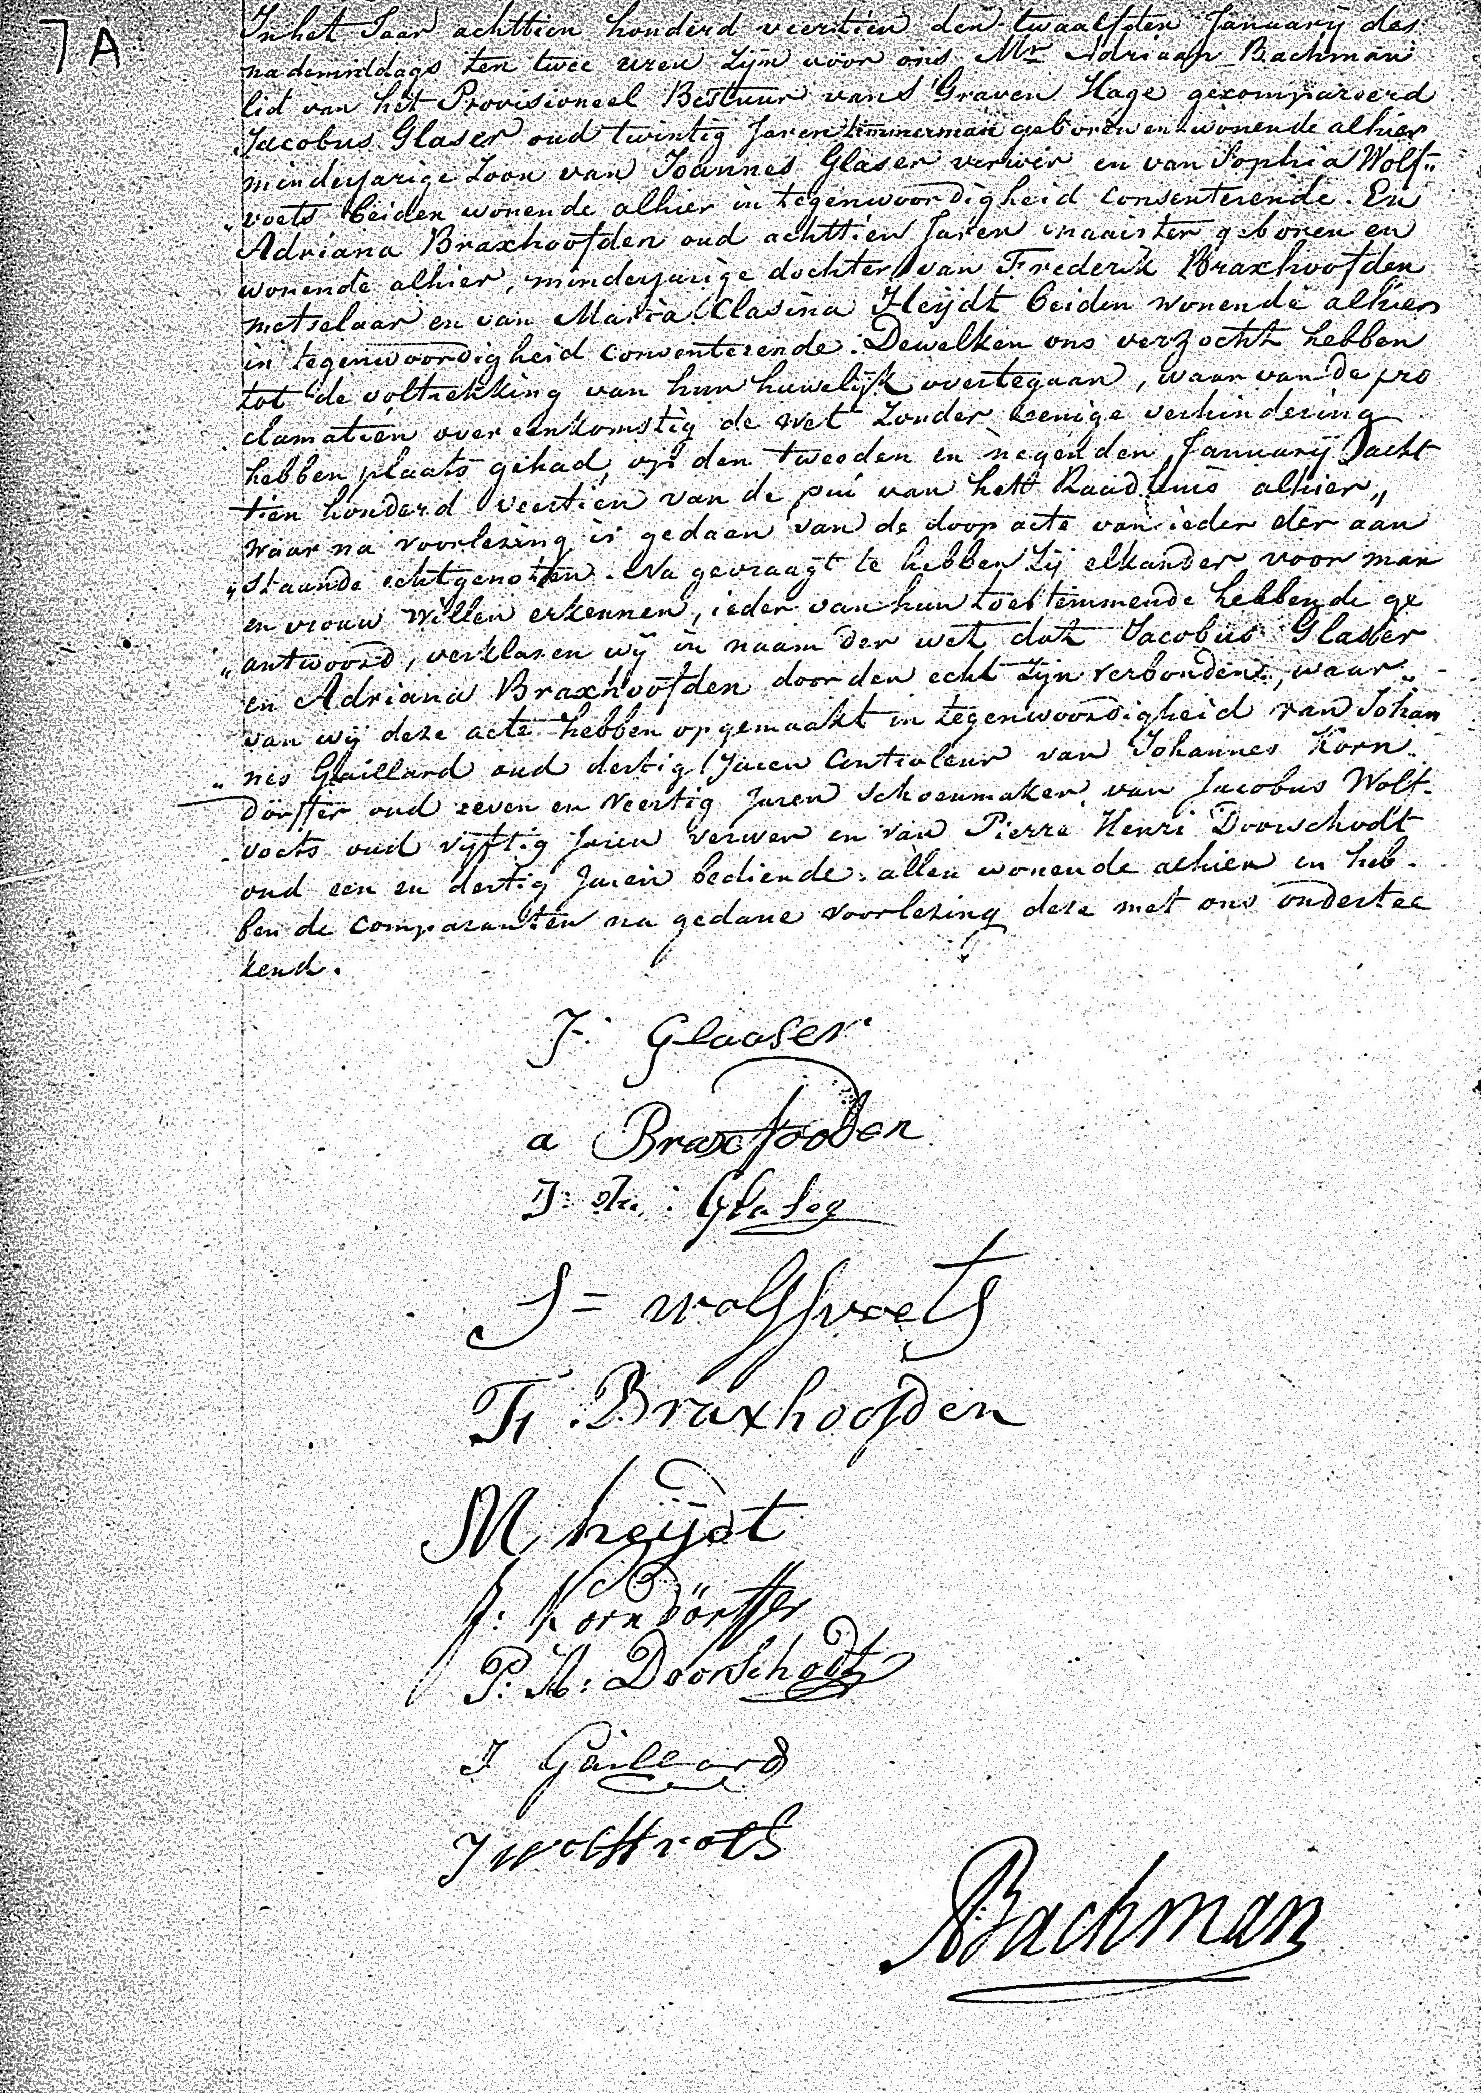 7 A
In het Jaar achttien honderd veertien den twaalfden Januarij des
nademiddags ten twee uren zijn voor ons Mr Adriaan Bachman
lid van het Provisioneel Bestuur van S'Graven Hage gecompareerd
Jacobus Glaser oud twintig Jaren timmerman geboren en wonende alhier
minderjarige Zoon van Joannes Glaser verwer en van Sophia Wolf„
„voets beiden wonende alhier in tegenwoordigheid consenterende. En
Adriana Braxhoofden oud achttien Jaren naaister geboren en
wonende alhier, minderjarige dochter van Frederik Braxhoofden
metselaar en van Maria Clasina Heijdt beiden wonende alhier
in tegenwoordigheid consenterende. Dewelken ons verzocht hebben
tot de voltrekking van hun huwelijk overtegaan, waar van de pro
clamatien over eenkomstig de wet zonder eenige verhindering
hebben plaats gehad, op den tweeden en negenden Januarij acht
tien honderd veertien van de pui van het Raadhuis alhier„
waar na voorlezing is gedaen van de doop acte van ieder der aan
„staande echtgenoten. Na gevraagt te hebben Zij elkander voor man
en vrouw willen erkennen, ieder van hun toestemmende hebbende ge
„antwoord, verklaren wij in naam der wet dat Jacobus Glasier
en Adriana Braxhoofden door den echt zijn verbonden, waar„
van wij deze acte hebben opgemaakt in tegenwoordigheid van Johan
„nes Gaillard oud dertig Jaren Controleur van Johannes Korn„
dörffer oud zeven en veertig Jaren schoenmaker van Jacobus Wolf„
„voets oud vijftig Jaren verwer en van Pierre Henri Doorschodt
oud een en dertig Jaren bediende. allen wonende alhier en heb„
ben de comparanten na gedane voorlezing deze met ons ondertee
kend.
J: Glaaser
a Braxhooden
J: : Glaser
S = wolffvoets
Fr Braxhoofden
M heijdt
J: Korndörffer
P: H: Doorschodt
J Gaillard
J wolffvoets
ABachman